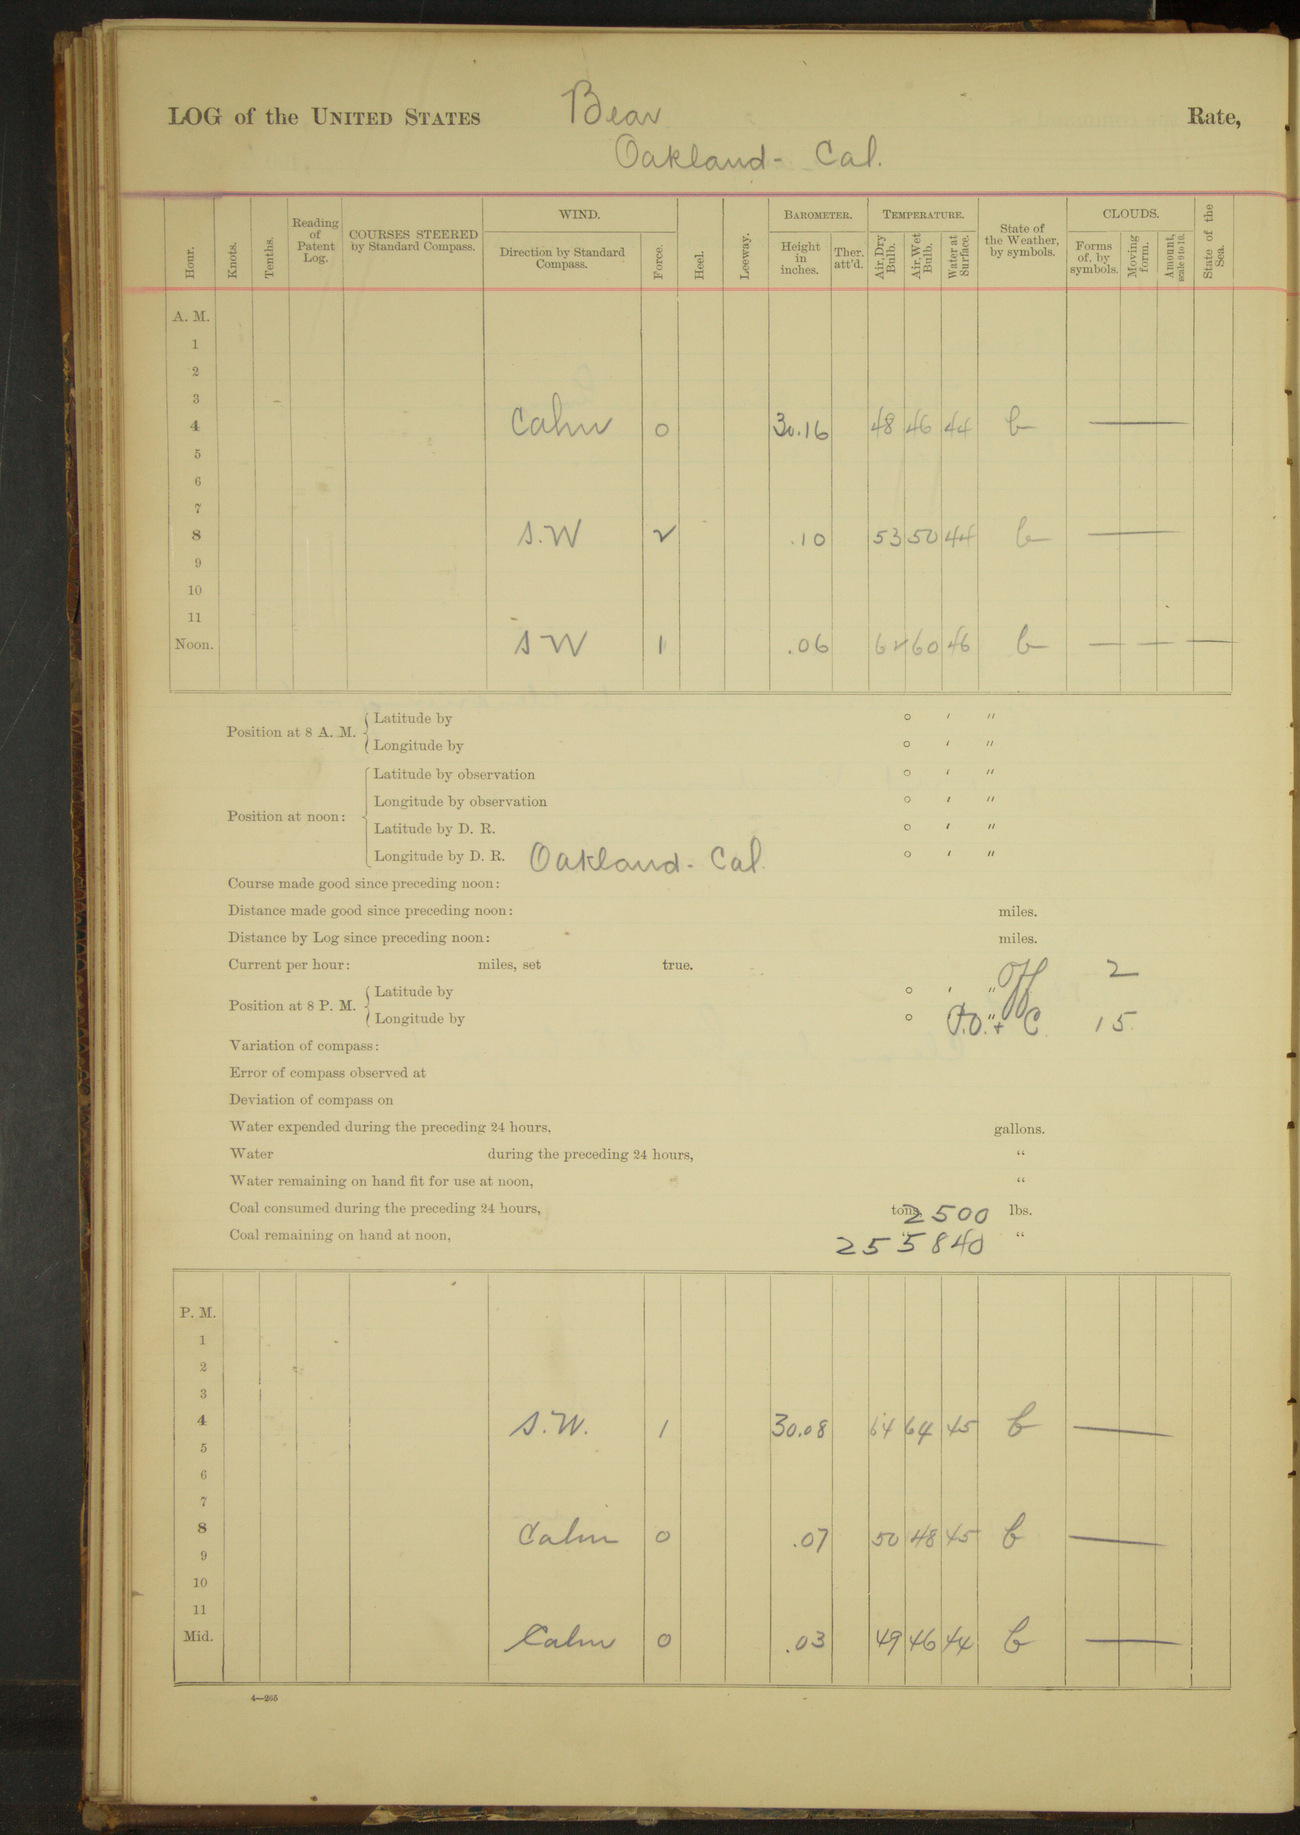 LOG of the UNITED STATES Bear Rate,
Oakland - Cal.
Hour. Knots. Tenths. Reading of Patent Log. COURSES STEERED by Standard Compass. WIND. Direction by Standard Compass. Force. Heel. Leeway. BAROMETER. Height in inches. Ther. att'd. TEMPERATURE. Air, Dry Bulb. Air, Wet Bulb. Water at Surface. State of the Weather, by symbols. CLOUDS. Forms of, by symbols. Moving form. Amount, scale 0 to 10. State of the Sea.
A. M.
1
2
3
4 Calm 0 30.16 48 46 44 b —
5
6
7
8 S.W 2 .10 53 50 44 b —
9
10
11
Noon. SW 1 .06 62 60 46 b — — —
Position at 8 A. M. { Latitude by ° ′ ″
Longitude by ° ′ ″
Position at noon: { Latitude by observation ° ′ ″
Longitude by observation ° ′ ″
Latitude by D. R. ° ′ ″
Longitude by D. R. Oakland - Cal. ° ′ ″
Course made good since preceding noon:
Distance made good since preceding noon: miles.
Distance by Log since preceding noon: miles.
Current per hour: miles, set true. Off 2
Position at 8 P. M. { Latitude by ° ′ ″
Longitude by ° ″ P.O. + C. 15
Variation of compass:
Error of compass observed at
Deviation of compass on
Water expended during the preceding 24 hours, gallons.
Water during the preceding 24 hours, “
Water remaining on hand fit for use at noon, “
Coal consumed during the preceding 24 hours, tons, 2500 lbs.
Coal remaining on hand at noon, 255840 “
P. M.
1
2
3
4 S.W. 1 30.08 64 64 45 b —
5
6
7
8 Calm 0 .07 50 48 45 b —
9
10
11
Mid. Calm 0 .03 49 46 44 b —
4—265